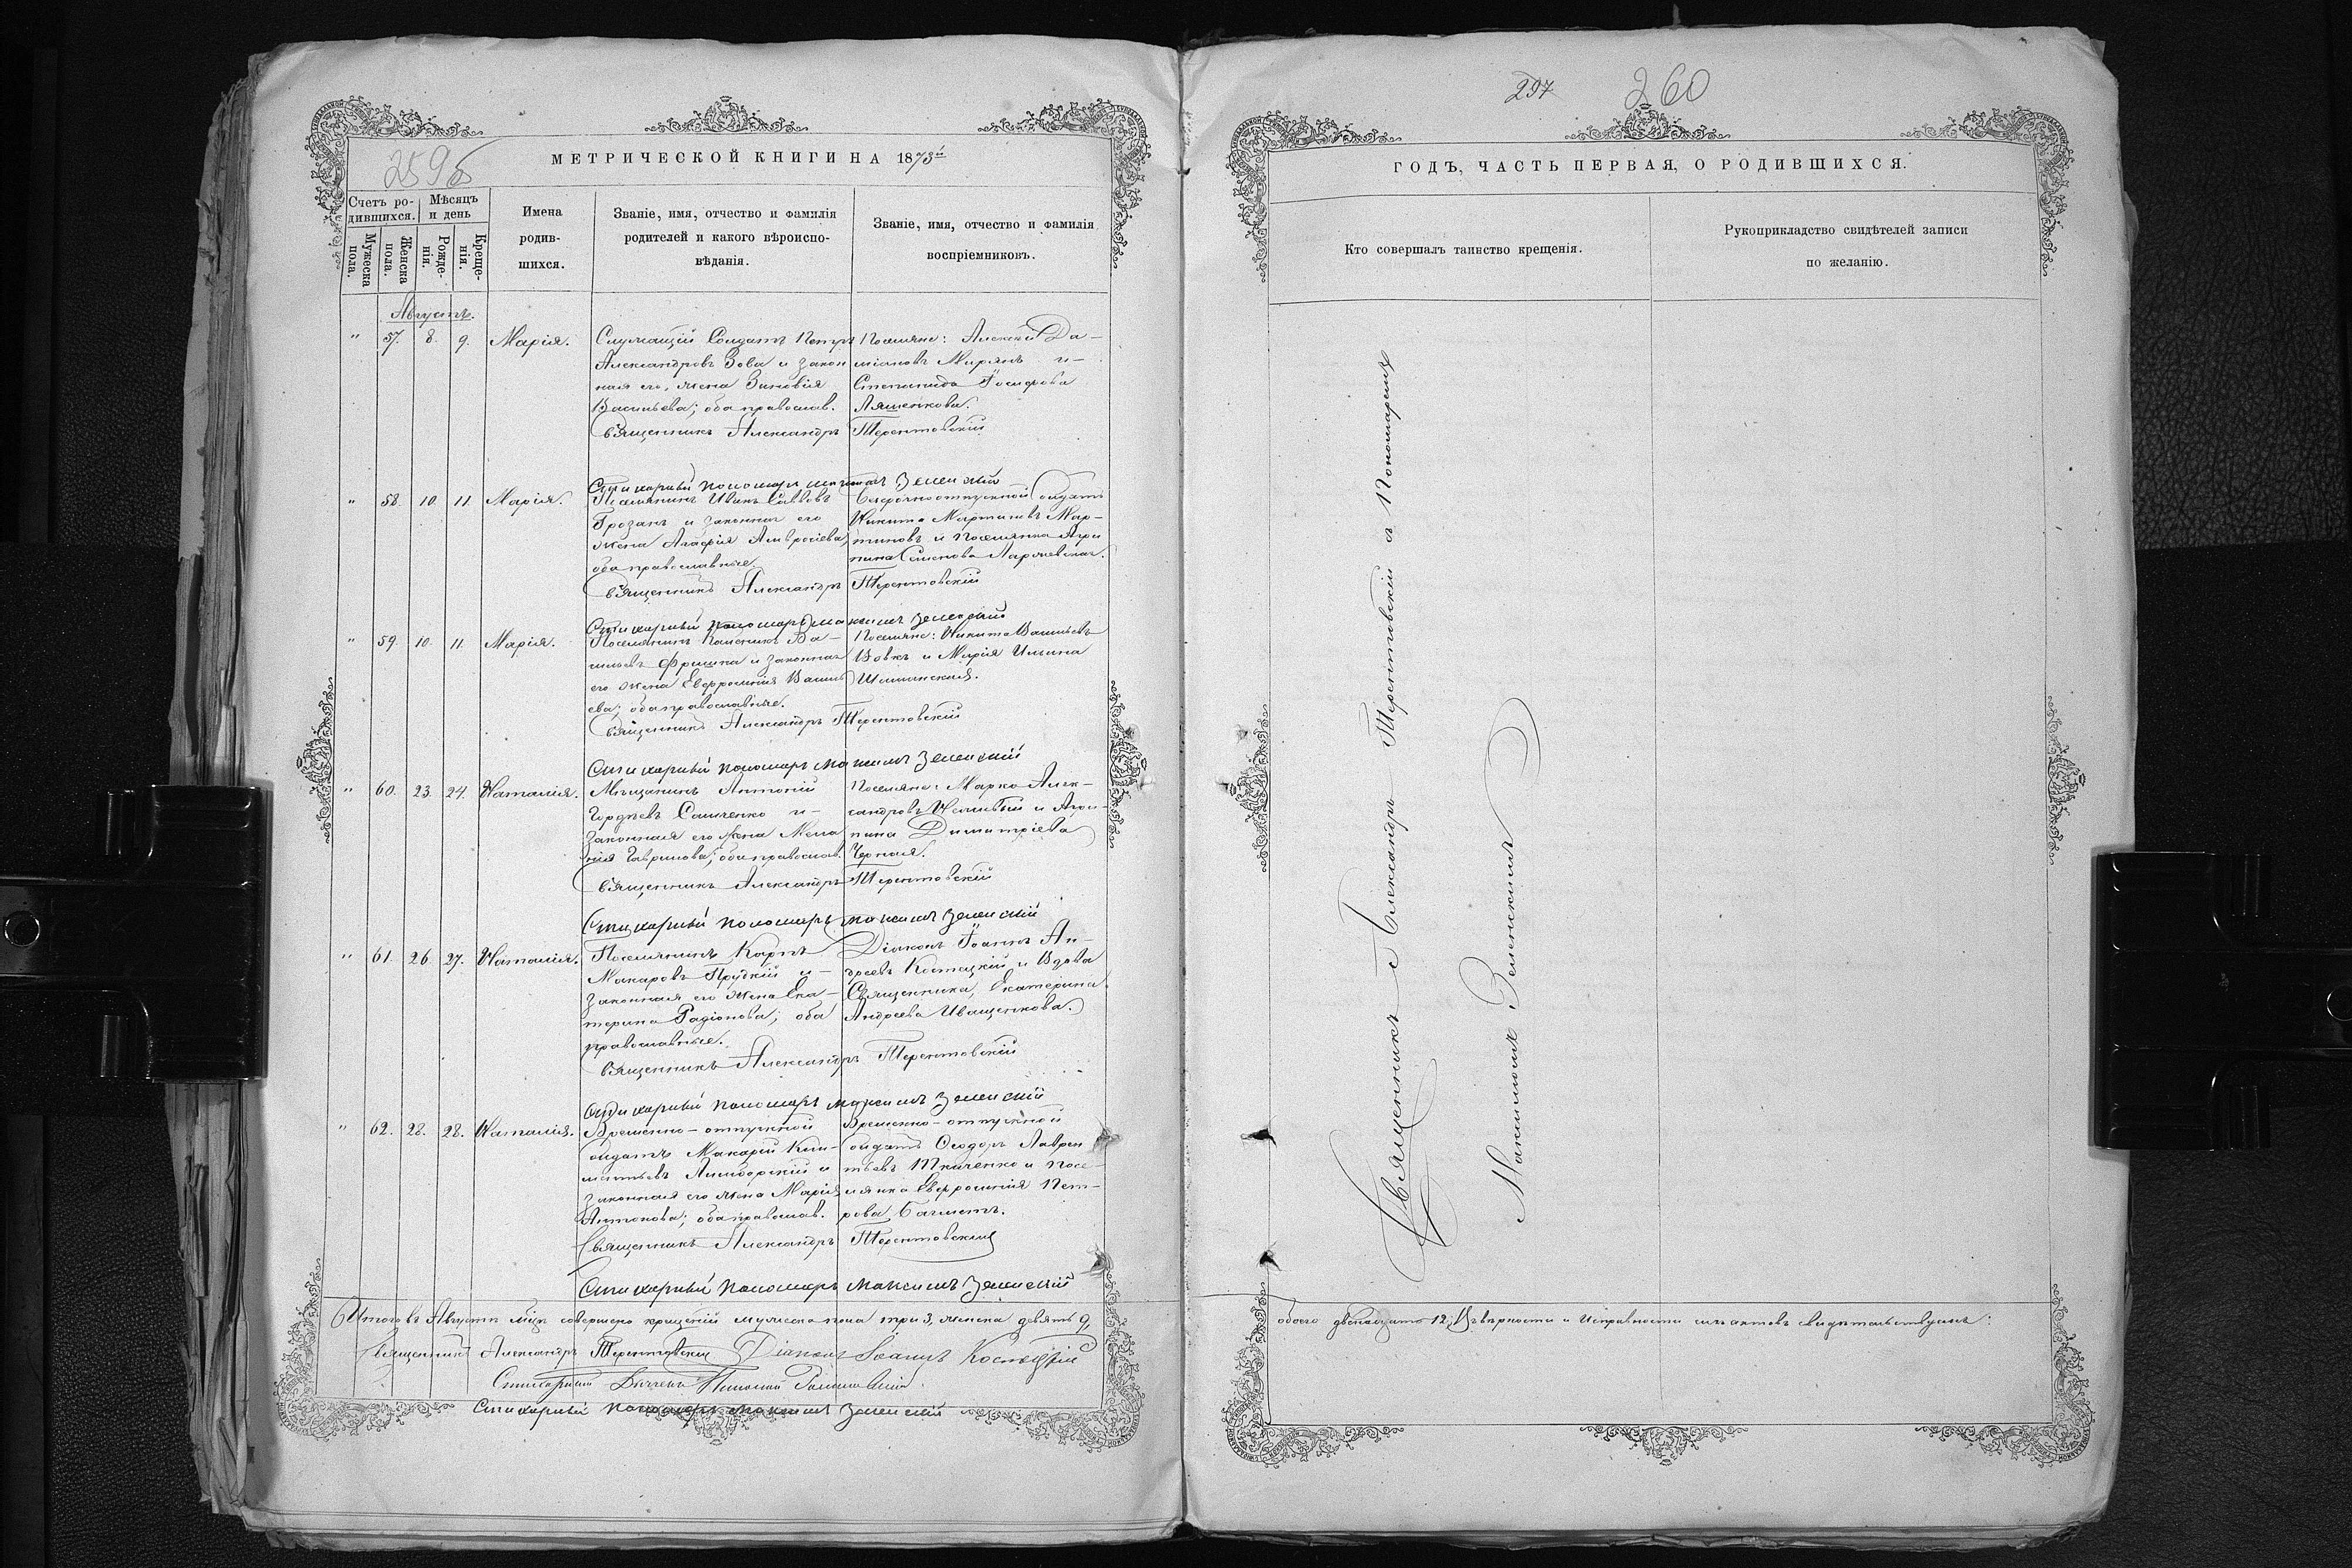 259б
МЕТРИЧЕСКОЙ КНИГИ НА 1873й
Счетъ родившихся.
Мужеска пола.
Женска пола.
Мѣсяцъ и день
Рожденія.
Крещенія.
Имена родившихся.
Званіе, имя, отчество и фамилія родителей и какого вѣроисповѣданія.
Званіе, имя, отчество и фамилія воспріемниковъ.
Августъ.
" 57. 8. 9. Марія.
Служащій Солдатъ Петръ
Александровъ Зова и закон
ная его жена Зиновія
Васильева; оба православ.
Поселяне: Алексѣй Да-
міановъ Мирянъ и
Степанида Іосифова
Ляшенкова.
Священникъ Александръ Терентовскій
Стихарный пономарь Максимъ Зеленскій
" 58. 10. 11. Марія.
Поселянинъ Иванъ Саввовъ
Грозанъ и законная его
жена Агафія Амвросіева,
оба православные
Безсрочноотпускной Солдатъ
Никита Мартиновъ Мар-
тиновъ и поселянка Агри
пина Семенова
Священникъ Александръ Терентовскій
Стихарный пономарь Максимъ Зеленскій
" 59. 10. 11. Марія.
Поселянинъ Ва-
сильевъ и законная
его жена Евфросинія Василь
ева; оба православные.
Поселяне: Никита Васильевъ
Вовкъ и Марія Ильина
Священникъ Александръ Терентовскій
Стихарный пономарь Максимъ Зеленскій
" 60. 23. 24. Наталія.
Мѣщанинъ Антоній
Гордѣевъ и
законная его жена Мела
нія Гаврилова; оба православ.
Поселяне: Марко Алек-
сандровъ и Агри-
пина Димитріева
Черная.
Священникъ Александръ Терентовскій
Стихарный пономарь Максимъ Зеленскій
" 61. 26. 27. Наталія.
Поселянинъ Карпъ
Макаровъ Прудкій и
законная его жена Ека-
терина Радіонова; оба
православные.
Діаконъ Іоаннъ Ан-
дреевъ Костецкій и Вдова
Священника, Екатерина
Андреева Иващенкова.
Священникъ Александръ Терентовскій
Стихарный пономарь Максимъ Зеленскій
" 62. 28. 28. Наталія.
Временно-отпускной
Солдатъ Макарій Кли-
ментьевъ и
законная его жена Марія
Антонова; оба православ.
Временно-отпускной
Солдатъ Феодоръ Лаврен
тьевъ Ткаченко и посе-
лянка Евфросинія Пет-
рова
Священникъ Александръ Терентовскій
Стихарный пономарь Максимъ Зеленскій
Итого въ Августѣ мѣцѣ совершено крещеній мужеска пола три 3, женска девять 9,
Священникъ Александръ Терентовскій Діаконъ Іоаннъ Костецкій
Стихарный
Стихарный пономарь Максимъ Зеленскій
297 260
ГОДЪ, ЧАСТЬ ПЕРВАЯ, О РОДИВШИХСЯ.
Кто совершалъ таинство крещенія.
Рукоприкладство свидѣтелей записи по желанію.
Священникъ Александръ Терентовскій съ Пономаремъ
Максимомъ Зеленскимъ
обоего двѣнадцать 12. Въ вѣрности и исправности сихъ актовъ свидѣтельствуемъ: